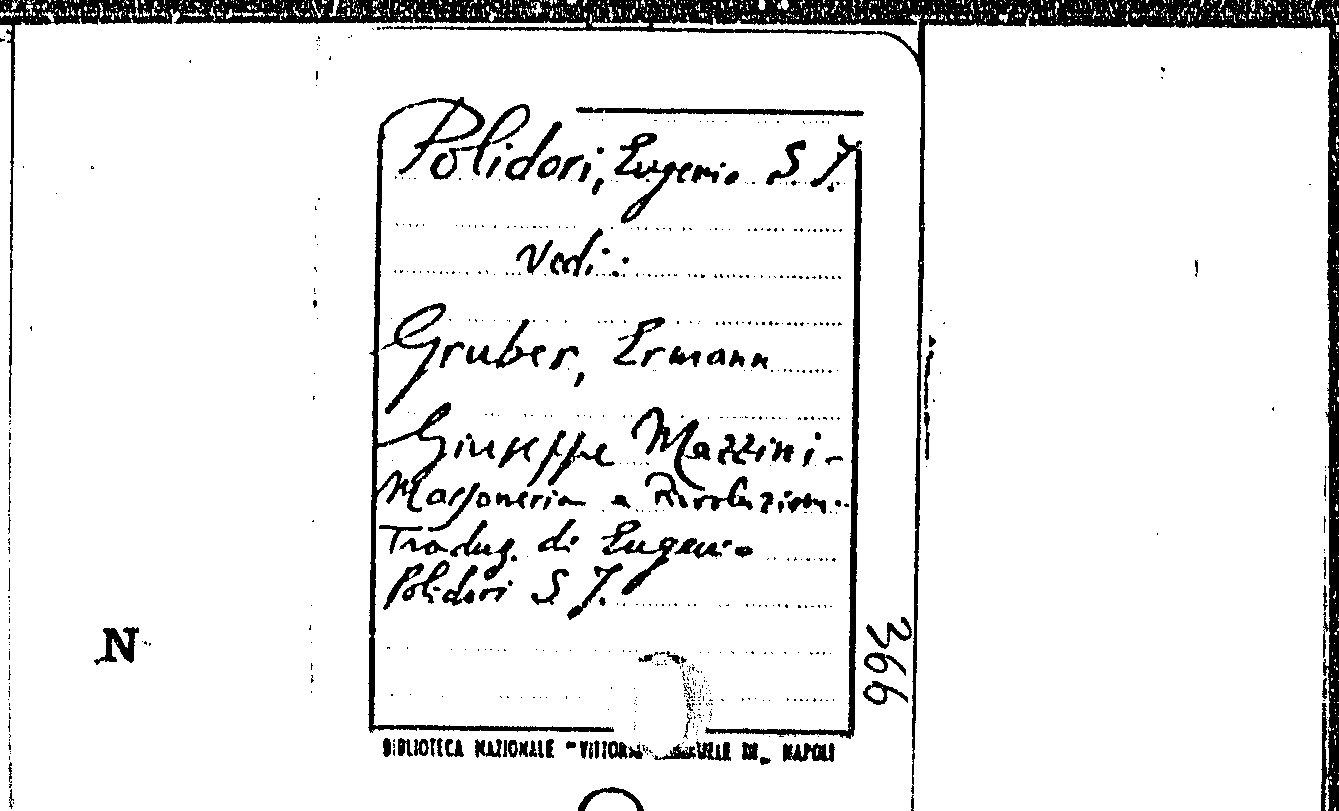 Polidori, Eugenio S. J.
Vedi:
Gruber, Ermann
Giuseppe Mazzini -
Massoneria e Rivoluzione.
Traduz. di Eugenio
Polidori S. J.
366
N
BIBLIOTECA NAZIONALE "VITTORIO EMANUELE III„ NAPOLI